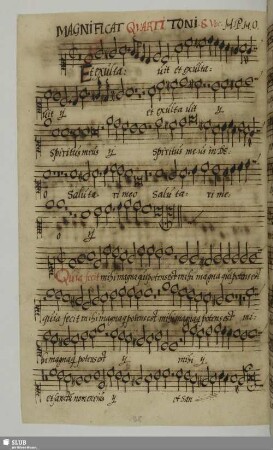 MAGNIFICAT QVARTI TONI
Et exulta: uit et exulta:
uit ij et exulta uit ij
Spiritus meus ij Spiritus meus in De:
o Saluta: ri meo Saluta: ri me:
o ij
Quia fecit mihi magna qui potens est mihi magna qui potens est
quia fecit mihi magna qui potens est mihi magna qui potens est
magna qui potens est ij mihi ij
et sanctū nomen eius ij et San
SLUB